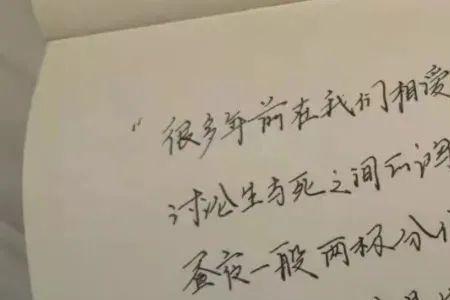 “很多年前在我们相爱
讨论生与死之间的
昼夜一般两极分